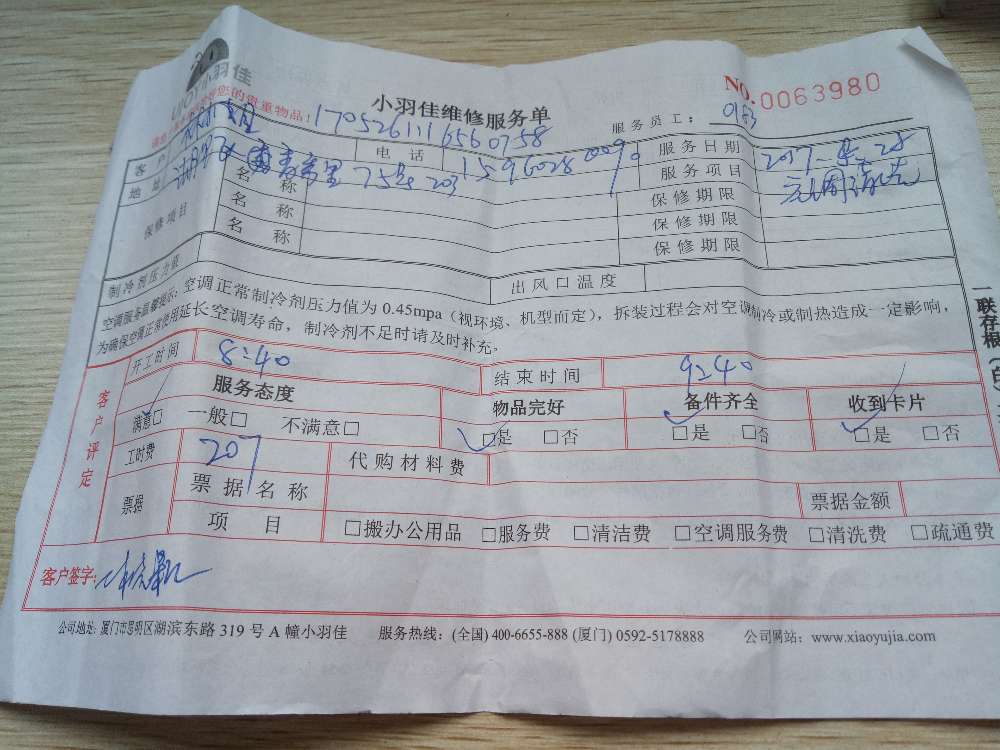 小羽佳
您的贵重物品!
小羽佳维修服务单
NO.0063980
1705261116560758
服务员工: 0183
客户 电话 服务日期 2017
地址 75号203 服务项目 空调清洗
保修项目 名称 保修期限
名称 保修期限
名称 保修期限
制冷剂压力值 出风口温度
空调服务温馨提示:空调正常制冷剂压力值为0.45mpa(视环境、机型而定),拆装过程会对空调制冷或制热造成一定影响,
为确保空调正常使用延长空调寿命,制冷剂不足时请及时补充。
一联存根(白
客户评定
开工时间 8:40 结束时间 9:40
服务态度 物品完好 备件齐全 收到卡片
满意□ 一般□ 不满意□ □是 □否 □是 □否 □是 □否
工时费 207 代购材料费
票据 票据名称 票据金额
项目 □搬办公用品 □服务费 □清洁费 □空调服务费 □清洗费 □疏通费
客户签字:
公司地址:厦门市思明区湖滨东路319号A幢小羽佳 服务热线:(全国)400-6655-888(厦门)0592-5178888 公司网站:www.xiaoyujia.com